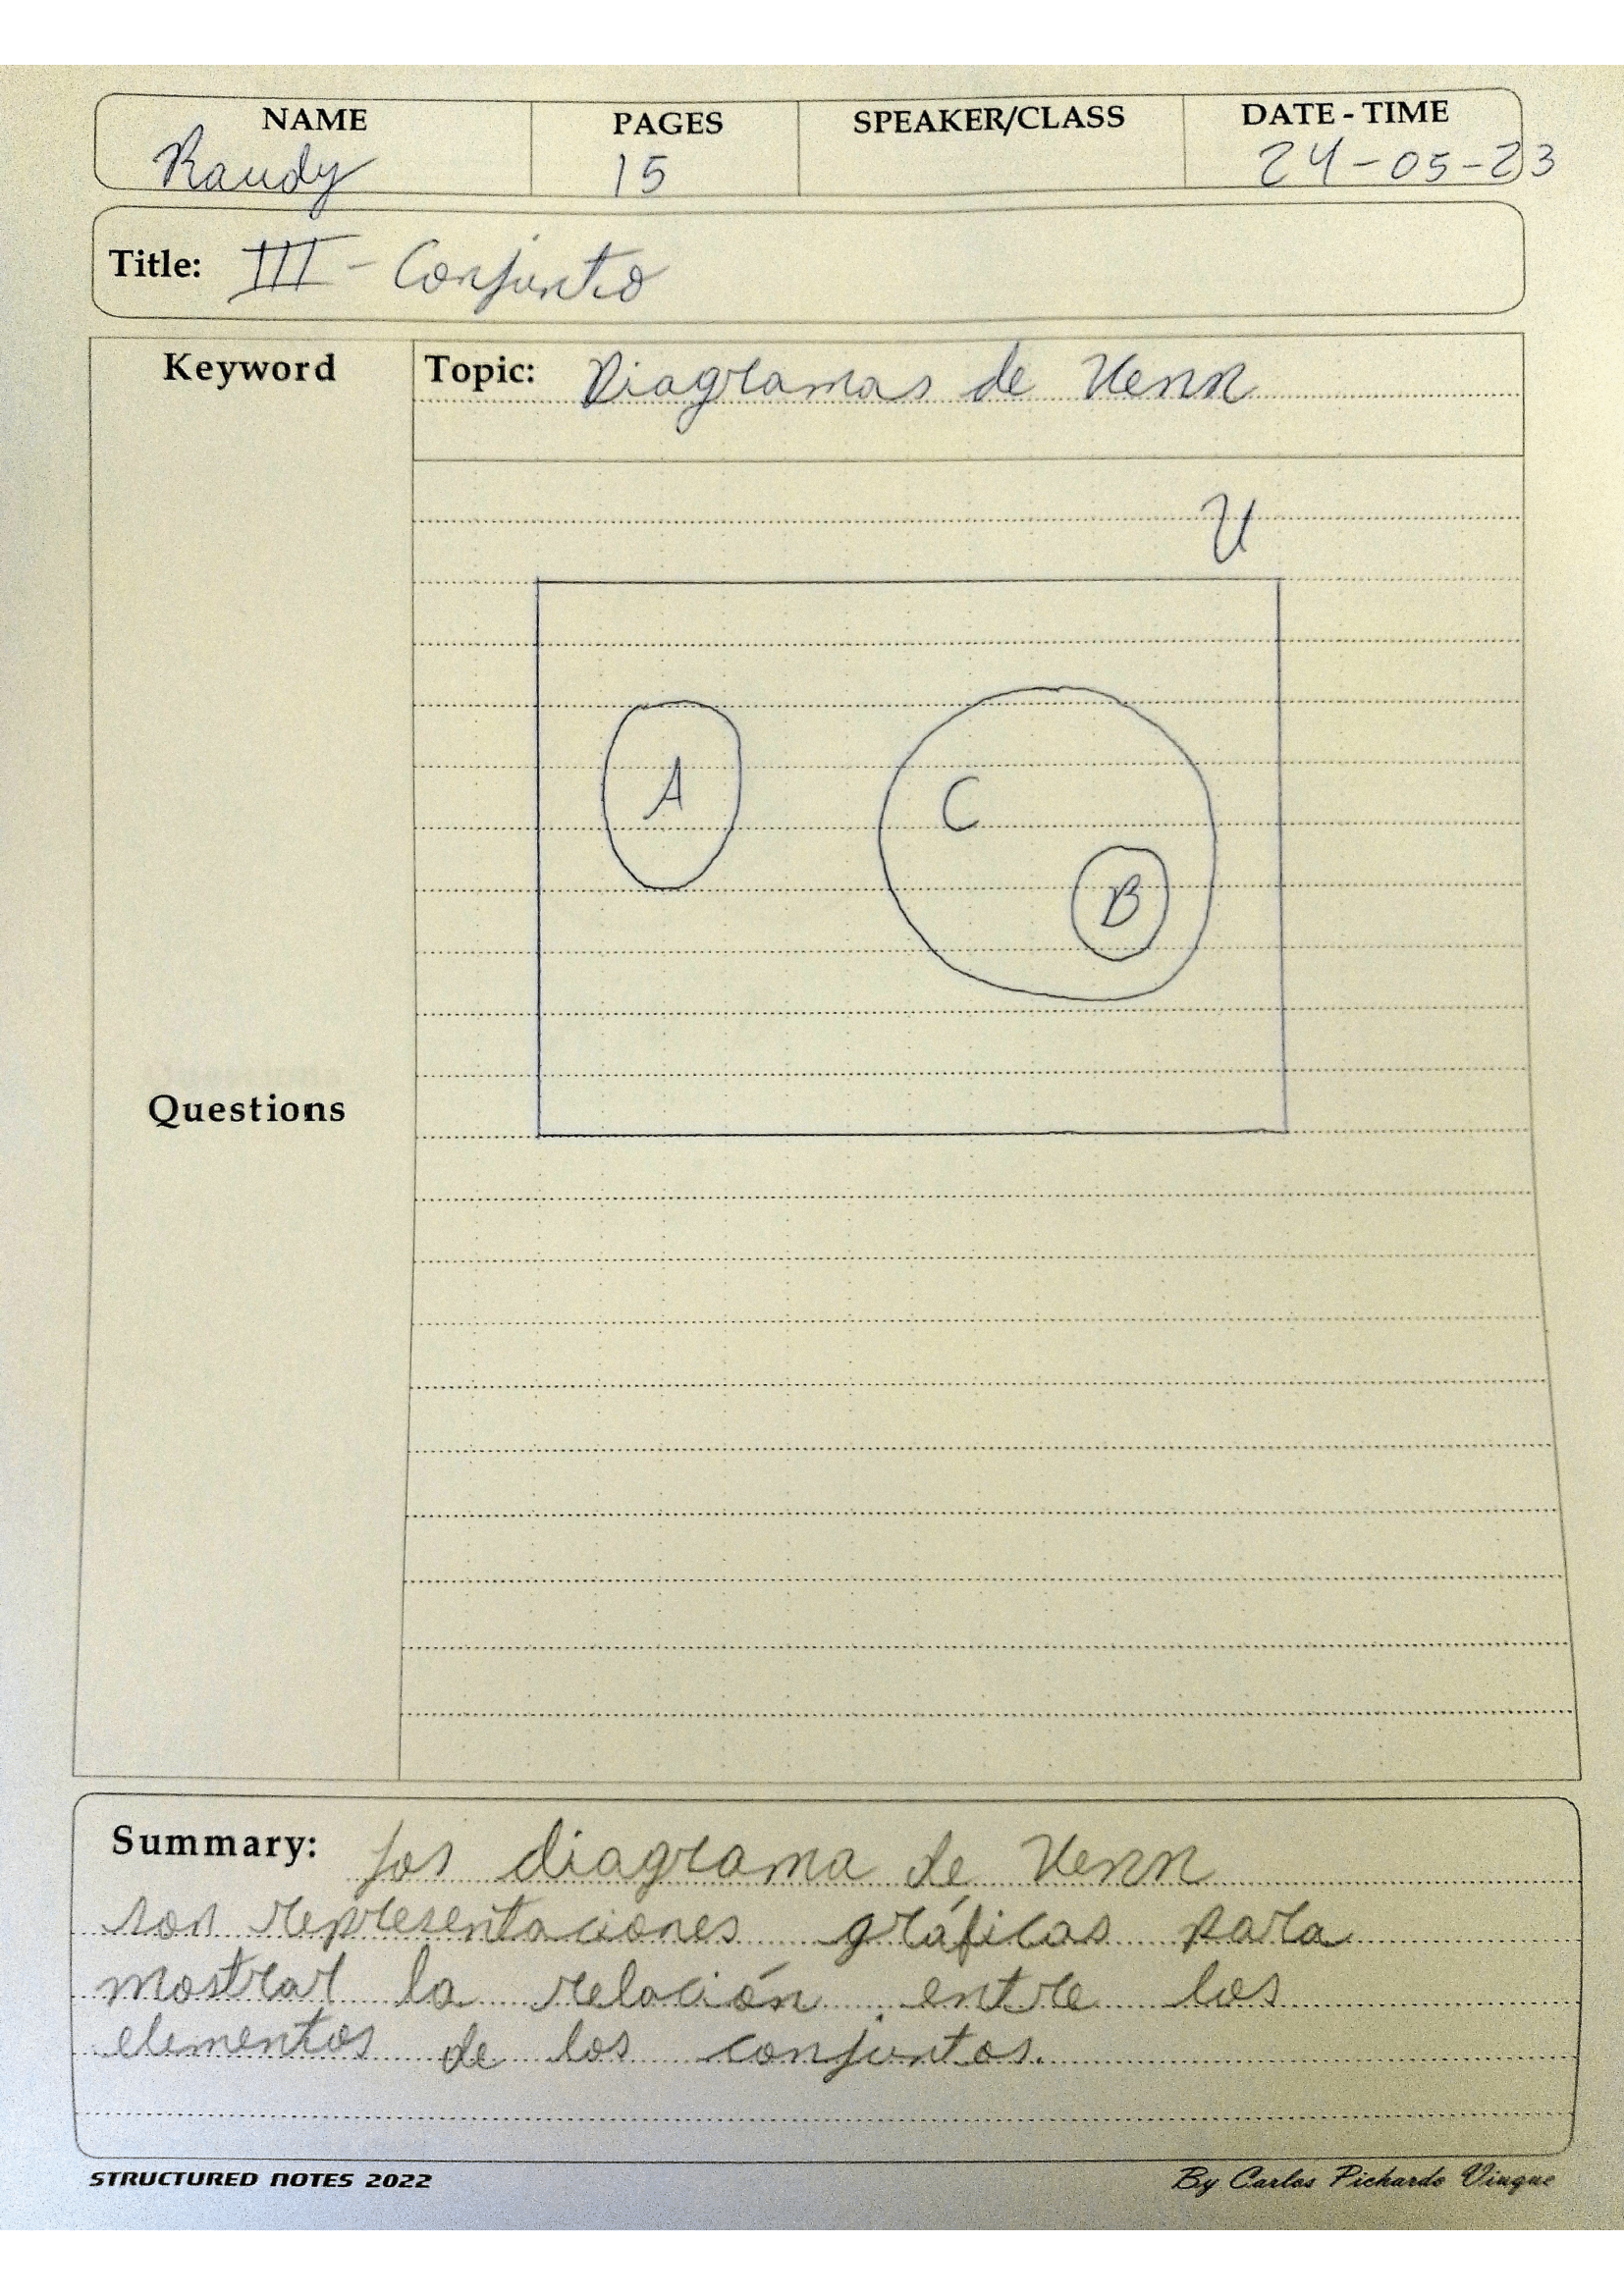 NAME PAGES SPEAKER/CLASS DATE - TIME
Raudy 15 24-05-23
Title: III - Conjunto
Keyword Topic: Diagramas de Venn
U
A
C
B
Questions
Summary: Los diagrama de Venn
son representaciones gráficas para
mostrar la relación entre los
elementos de los conjuntos.
STRUCTURED NOTES 2022 By Carlos Pichardo Viuque